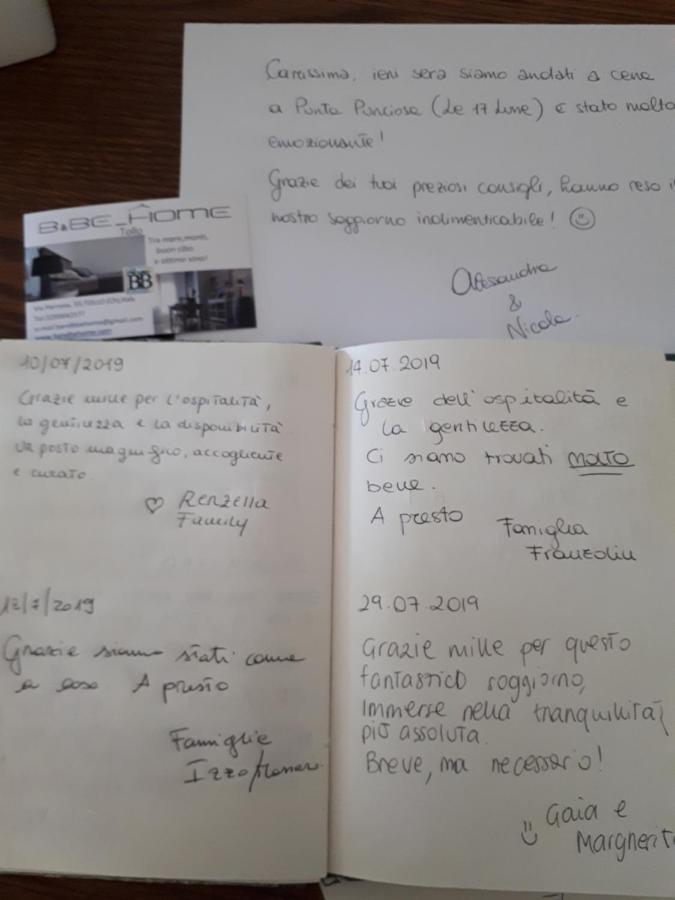 Carissima, ieri sera siamo andati a cena
a Punta Punciosa (Le 17 Lune) è stato molto
emozionante!
Grazie dei tuoi preziosi consigli, hanno reso il
nostro soggiorno indimenticabile! ☺
Alessandra
&
Nicola.
B&BE_HOME
Tollo
Tra mare, monti,
buon cibo
e ottimo vino!
BB
10/07/2019
Grazie mille per l'ospitalità,
la gentilezza e la disponibilità.
Un posto magnifico, accogliente
e curato.
♡ Renzella
Family
12/7/2019
Grazie siamo stati come
a casa A presto
Famiglie
Izzo/
14.07.2019
Grazie dell'ospitalità e
la gentilezza.
Ci siamo trovati MOLTO
bene.
A presto
Famiglia
Franzolin
29.07.2019
Grazie mille per questo
fantastico soggiorno,
Immerse nella tranquillità
più assoluta.
Breve, ma necessario!
☺ Gaia e
Margherit